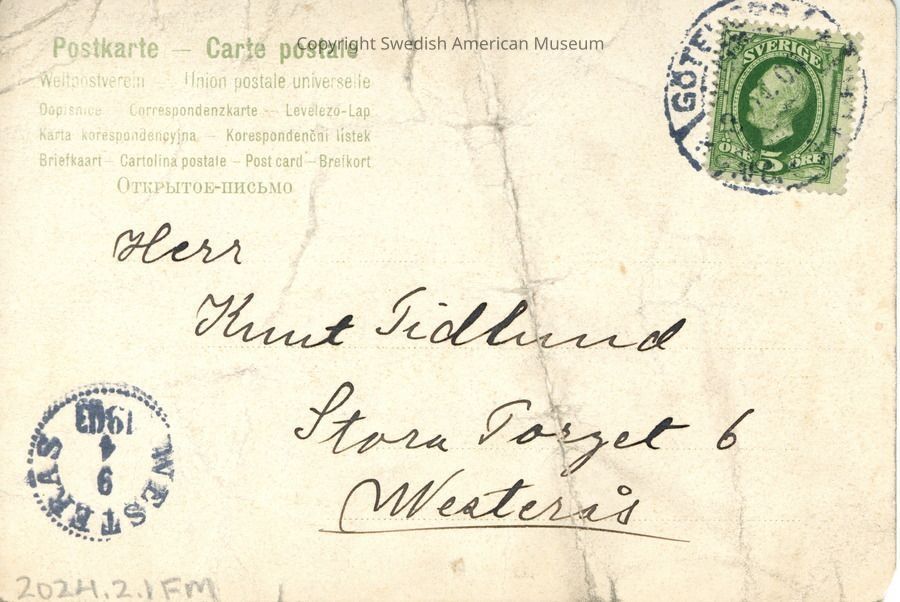 Copyright Swedish American Museum
Postkarte — Carte postale
Weltpostverein — Union postale universelle
Dopisnice — Correspondenzkarte — Levelező-Lap
Karta korespondencyjna — Korespondenční lístek
Briefkaart – Cartolina postale – Post card – Brefkort
Открытое-письмо
SVERIGE
ÖRE 5 ÖRE
Herr
Knut Tidlund
Stora Torget 6
Westerås
WESTERÅS
9
4
2024.2.1FM